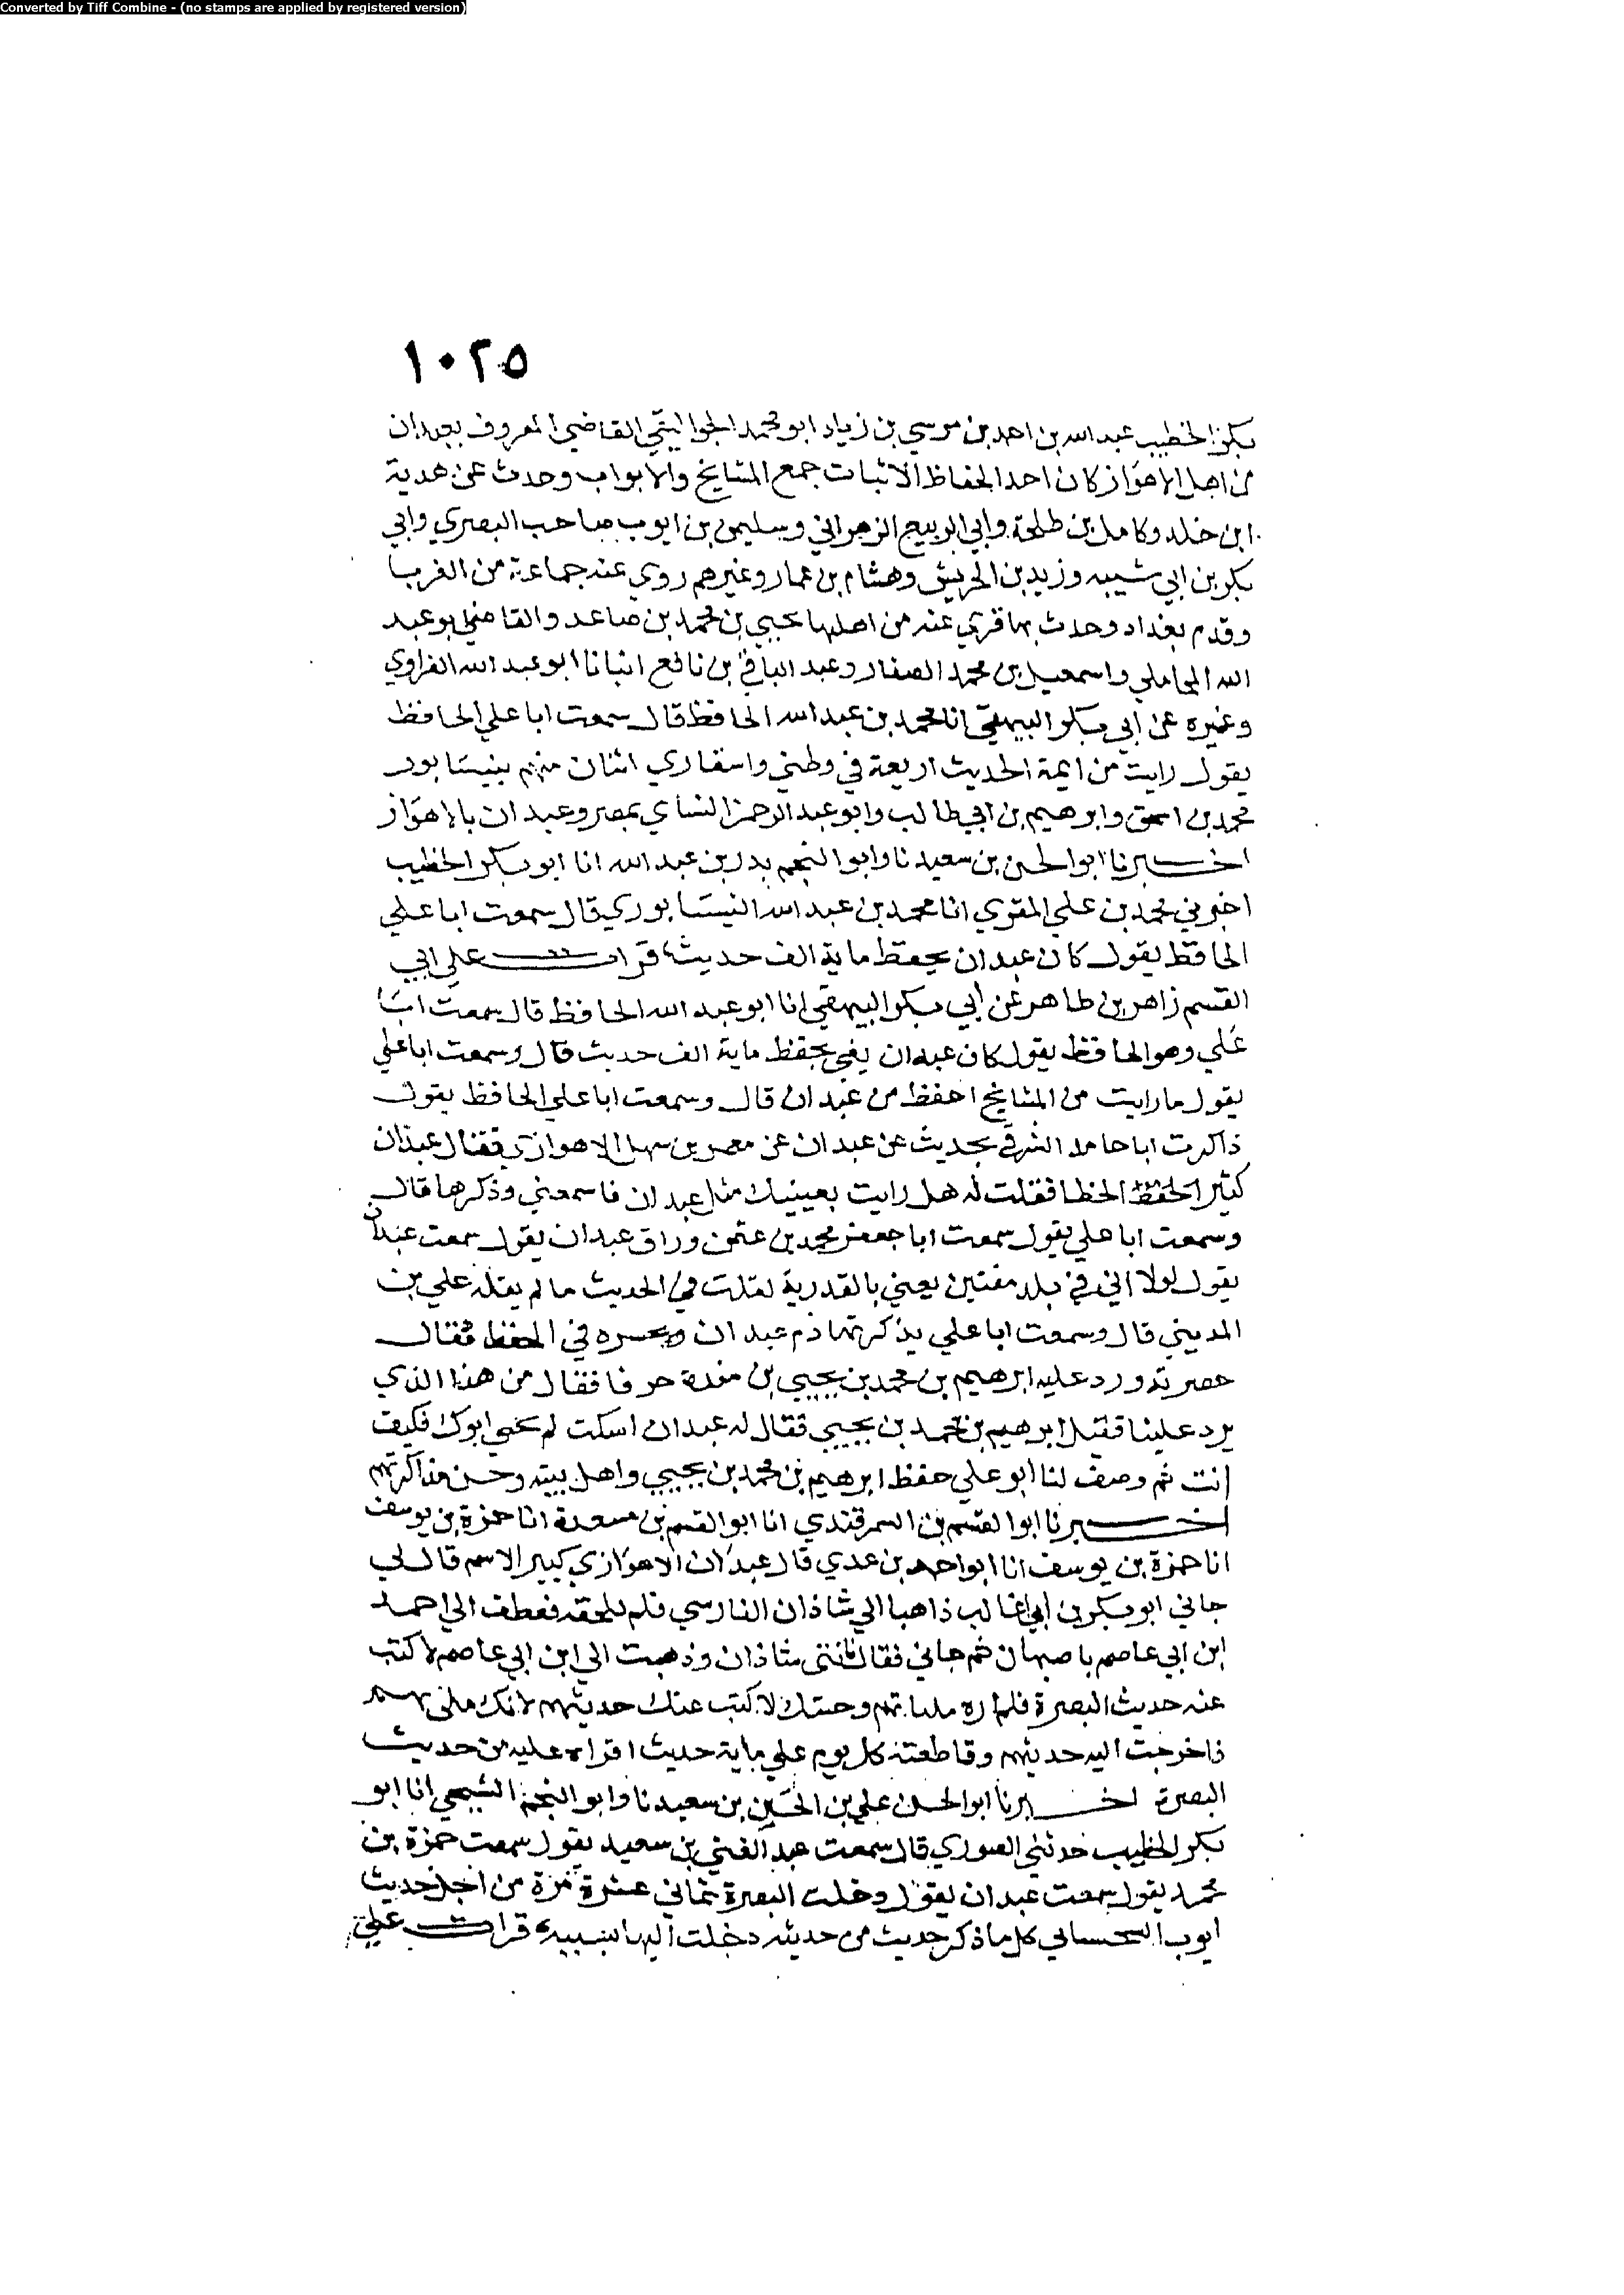 Converted by Tiff Combine - (no stamps are applied by registered version)
١٠٢٥
بكر الخطيب عبد الله بن احمد بن موسي بن زياد ابو محمد الجواليقي القاضي المعروف بعبدان
من اهل الاهواز كان احد الحفاظ الاثبات جمع المشايخ والابواب وحدث عن هدبة
ابن خلد وكامل بن طلحة وابي الربيع الزهراني وسليمن بن ايوب صاحب البصري وابي
بكر بن ابي شيبه وزيد بن الحريش وهشام بن عمار وغيرهم روي عنه جماعة من الغربا
وقدم بغداد وحدث بها فروي عنه من اهلها يحيي بن محمد بن صاعد والقاضي ابو عبد
الله المحاملي واسمعيل بن محمد الصفار وعبد الباقي بن نافع انبانا ابو عبد الله الفراوي
وغيره عن ابي بكر البيهقي انا محمد بن عبد الله الحافظ قال سمعت ابا علي الحافظ
يقول رايت من ايمة الحديث اربعة في وطني واسفاري اثنان منهم بنيسابور
محمد بن اسحق وابرهيم بن ابي طالب وابو عبد الرحمن النساي بمصر وعبدان بالاهواز
اخبرنا ابو الحسن بن سعيد نا وابو النجم بدر بن عبد الله انا ابو بكر الخطيب
اخبرني محمد بن علي المقري انا محمد بن عبد الله النيسابوري قال سمعت ابا علي
الحافظ يقول كان عبدان يحفظ ماية الف حديث قرات علي ابي
القسم زاهر بن طاهر عن ابي بكر البيهقي انا ابو عبد الله الحافظ قال سمعت ابا
علي وهو الحافظ يقول كان عبدان يفي بحفظ ماية الف حديث قال وسمعت ابا علي
يقول ما رايت من المشايخ احفظ من عبدان قال وسمعت ابا علي الحافظ يقول
ذاكرت ابا حامد الشرقي بحديث عن عبدان عن معمر بن سهل الاهوازي فقال عبدان
كثير الخطا فقلت له هل رايت بعينيك مثل عبدان فاسمعني وذكرها قال
وسمعت ابا علي يقول سمعت ابا جعفر محمد بن عثمن وراق عبدان يقول سمعت عبدان
يقول لولا اني في بلد مفتين يعني بالقدرية لقلت في الحديث ما لم يقله علي بن
المديني قال وسمعت ابا علي يذكر عبدان في الحفظ فقال
حضرته ورد عليه ابرهيم بن محمد بن يحيي بن مندة حرفا فقال من هذا الذي
يرد علينا فقيل ابرهيم بن محمد بن يحيي فقال له عبدان اسكت لم يحي ابوك فكيف
انت ثم وصف لنا ابو علي حفظ ابرهيم بن محمد بن يحيي واهل بيته وحسن مذاكرتهم
اخبرنا ابو القسم بن السمرقندي انا ابو القسم بن مسعدة انا حمزة بن يوسف
انا حمزة بن يوسف انا ابو احمد بن عدي قال عبدان الاهوازي كبير الاسم قال لي
جاني ابو بكر بن ابي غالب ذاهبا الي شاذان الفارسي فلم يلحقه فعطف الي احمد
ابن ابي عاصم باصبهان ثم جاني فقال فاتني شاذان وذهبت الي ابن ابي عاصم لاكتب
عنه حديث البصرة فلم اره مليا بهم وجيتك لاكتب عنك حديثهم لانك ملي بهم
فاخرجت اليه حديثهم وقاطعته كل يوم علي ماية حديث اقراه عليه من حديث
البصرة اخبرنا ابو الحسن علي بن الحسين بن سعيد نا وابو النجم الشيحي انا ابو
بكر الخطيب حدثني الصوري قال سمعت عبد الغني بن سعيد يقول سمعت حمزة بن
محمد يقول سمعت عبدان يقول دخلت البصرة ثماني عشرة مرة من اجل حديث
ايوب السحساني كل ما ذكر حديث من حديثه دخلت اليها بسببه قرات علي